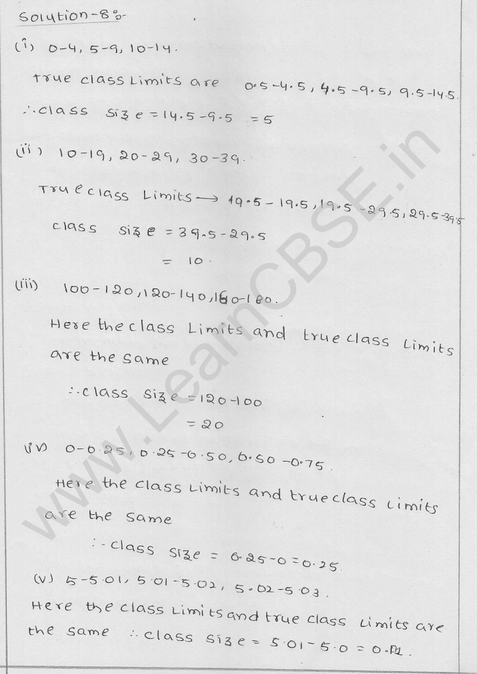 Solution-8:-
(i) 0-4, 5-9, 10-14.
True class Limits are 0.5-4.5, 4.5-9.5, 9.5-14.5
∴ class size = 14.5-9.5 = 5
(ii) 10-19, 20-29, 30-39.
True class Limits → 19.5-19.5, 19.5-29.5, 29.5-39.5
class size = 39.5-29.5
= 10.
(iii) 100-120, 120-140, 160-180.
Here the class Limits and true class Limits
are the same
∴ class size = 120-100
= 20
(iv) 0-0.25, 0.25-0.50, 0.50-0.75.
Here the class Limits and true class Limits
are the same
∴ class size = 0.25-0 = 0.25.
(v) 5-5.01, 5.01-5.02, 5.02-5.03.
Here the class Limits and true class Limits are
the same ∴ class size = 5.01-5.0 =
www.LearnCBSE.in